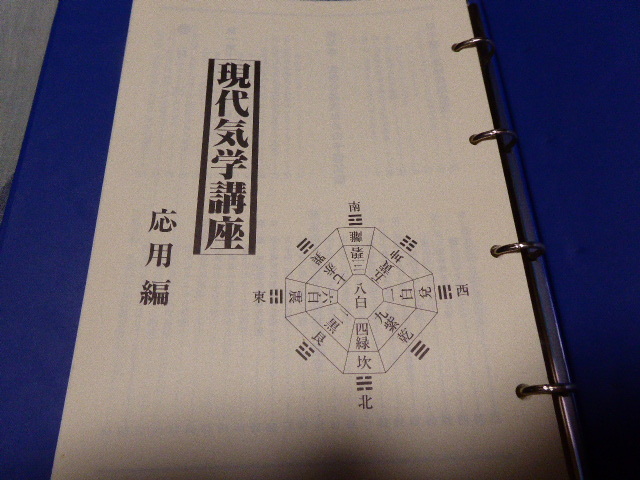 現代気学講座
応用編
南
離
三碧
坤
五黄
西
兌
一白
乾
九紫
北
坎
四緑
艮
二黒
東
震
六白
巽
七赤
八白